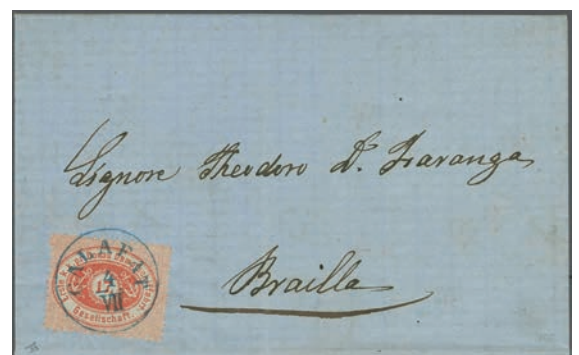 Signore Theodoro D. Faranga
Brailla
CALAFAT
4
VII
Gesellschaft